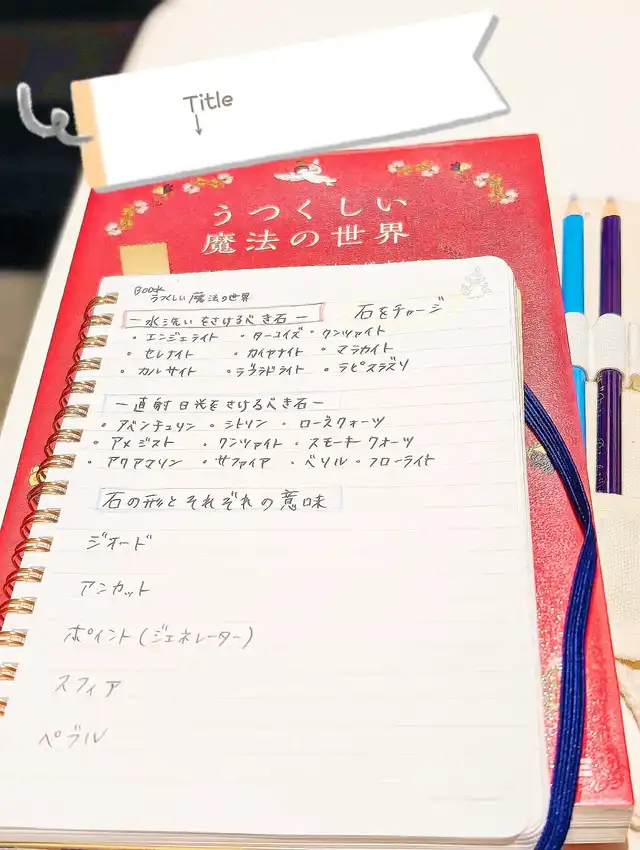 Title
↓
うつくしい
魔法の世界
Book
うつくしい魔法の世界
ー水洗いをさけるべき石ー 石をチャージ
・エンジェライト ・ターコイズ ・クンツァイト
・セレナイト ・カイヤナイト ・マラカイト
・カルサイト ・ラブラドライト ・ラピスラズリ
ー直射日光をさけるべき石ー
・アベンチュリン ・シトリン ・ローズクォーツ
・アメジスト ・クンツァイト ・スモーキークォーツ
・アクアマリン ・サファイア ・ベリル ・フローライト
石の形とそれぞれの意味
ジオード
アンカット
ポイント(ジェネレーター)
スフィア
ペブル